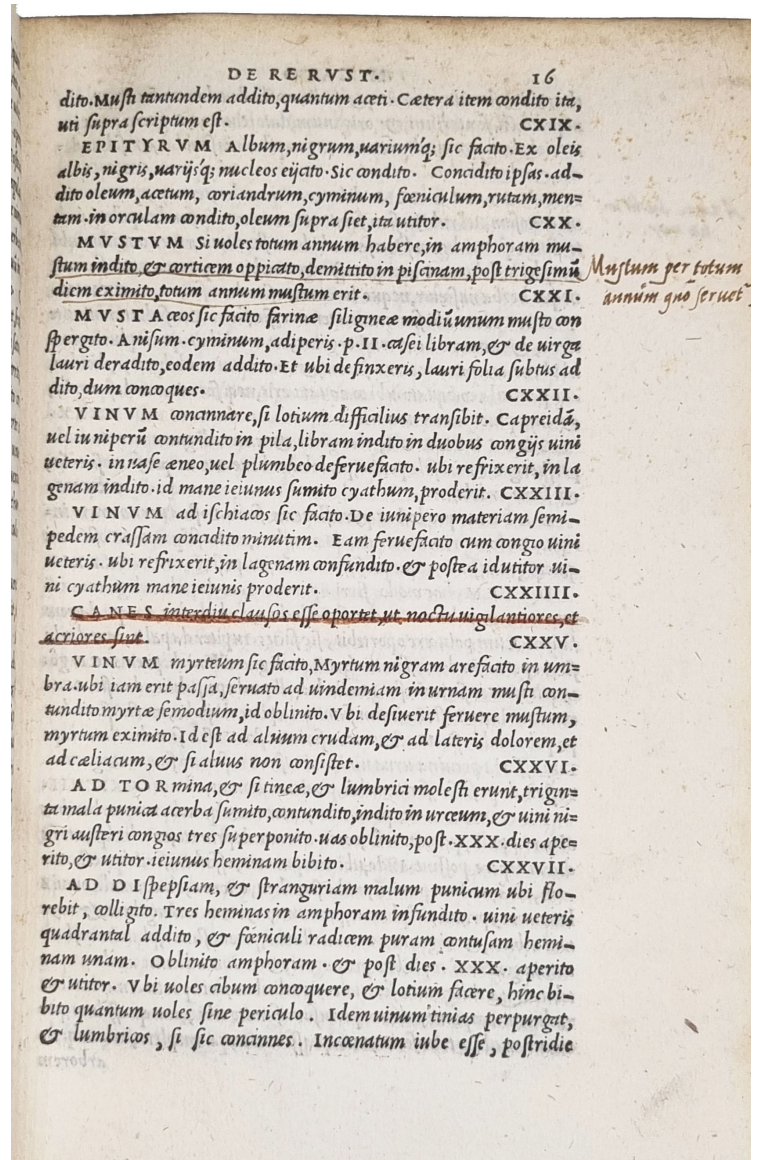 DE RE RVST. 16
dito. Musti tantundem addito, quantum aceti. Cætera item condito ita,
uti supra scriptum est. CXIX.
EPITYRVM Album, nigrum, uariumq́; sic facito. Ex oleis
albis, nigris, uarijsq́; nucleos eijcito. Sic condito. Concidito ipsas. ad-
dito oleum, acetum, coriandrum, cyminum, fœniculum, rutam, men=
tam. in orculam condito, oleum supra siet, ita utitor. CXX.
MVSTVM Si uoles totum annum habere, in amphoram mu-
stum indito, & corticem oppicato, demittito in piscinam, post trigesimũ
diem eximito, totum annum mustum erit. CXXI.
Mustum per totum
annum quo᷒ seruet᷒
MVSTAceos sic facito farinæ siligineæ modiũ unum musto con
spergito. Anisum. cyminum, adipis. p. II. casei libram, & de uirga
lauri deradito, eodem addito. Et ubi definxeris, lauri folia subtus ad
dito, dum concoques. CXXII.
VINVM concinnare, si lotium difficilius transibit. Capreidã,
uel iuniperũ contundito in pila, libram indito in duobus congijs uini
ueteris. in uase æneo, uel plumbeo deferuefacito. ubi refrixerit, in la
genam indito. id mane ieiunus sumito cyathum, proderit. CXXIII.
VINVM ad ischiacos sic facito. De iunipero materiam semi-
pedem crassam concidito minutim. Eam feruefacito cum congio uini
ueteris. ubi refrixerit, in lagenam confundito. & postea id utitor ui-
ni cyathum mane ieiunis proderit. CXXIIII.
CANES interdiu clausos esse oportet, ut noctu uigilantiores, et
acriores sint. CXXV.
VINVM myrteum sic facito, Myrtum nigram arefacito in um=
bra. ubi iam erit passa, seruato ad uindemiam in urnam musti con-
tundito myrtæ semodium, id oblinito. Vbi desiuerit feruere mustum,
myrtum eximito. Id est ad aluum crudam, & ad lateris dolorem, et
ad cæliacum, & si aluus non consistet. CXXVI.
AD TORmina, & si tineæ, & lumbrici molesti erunt, trigin=
ta mala punica acerba sumito, contundito, indito in urceum, & uini ni=
gri austeri congios tres superponito. uas oblinito, post. XXX. dies ape=
rito, & utitor. ieiunus heminam bibito. CXXVII.
AD DIspepsiam, & stranguriam malum punicum ubi flo-
rebit, colligito. Tres heminas in amphoram infundito. uini ueteris
quadrantal addito, & fœniculi radicem puram contusam hemi-
nam unam. Oblinito amphoram. & post dies. XXX. aperito
& utitor. Vbi uoles cibum concoquere, & lotium facere, hinc bi-
bito quantum uoles sine periculo. Idem uinum tinias perpurgat,
& lumbricos, si sic concinnes. Incœnatum iube esse, postridie